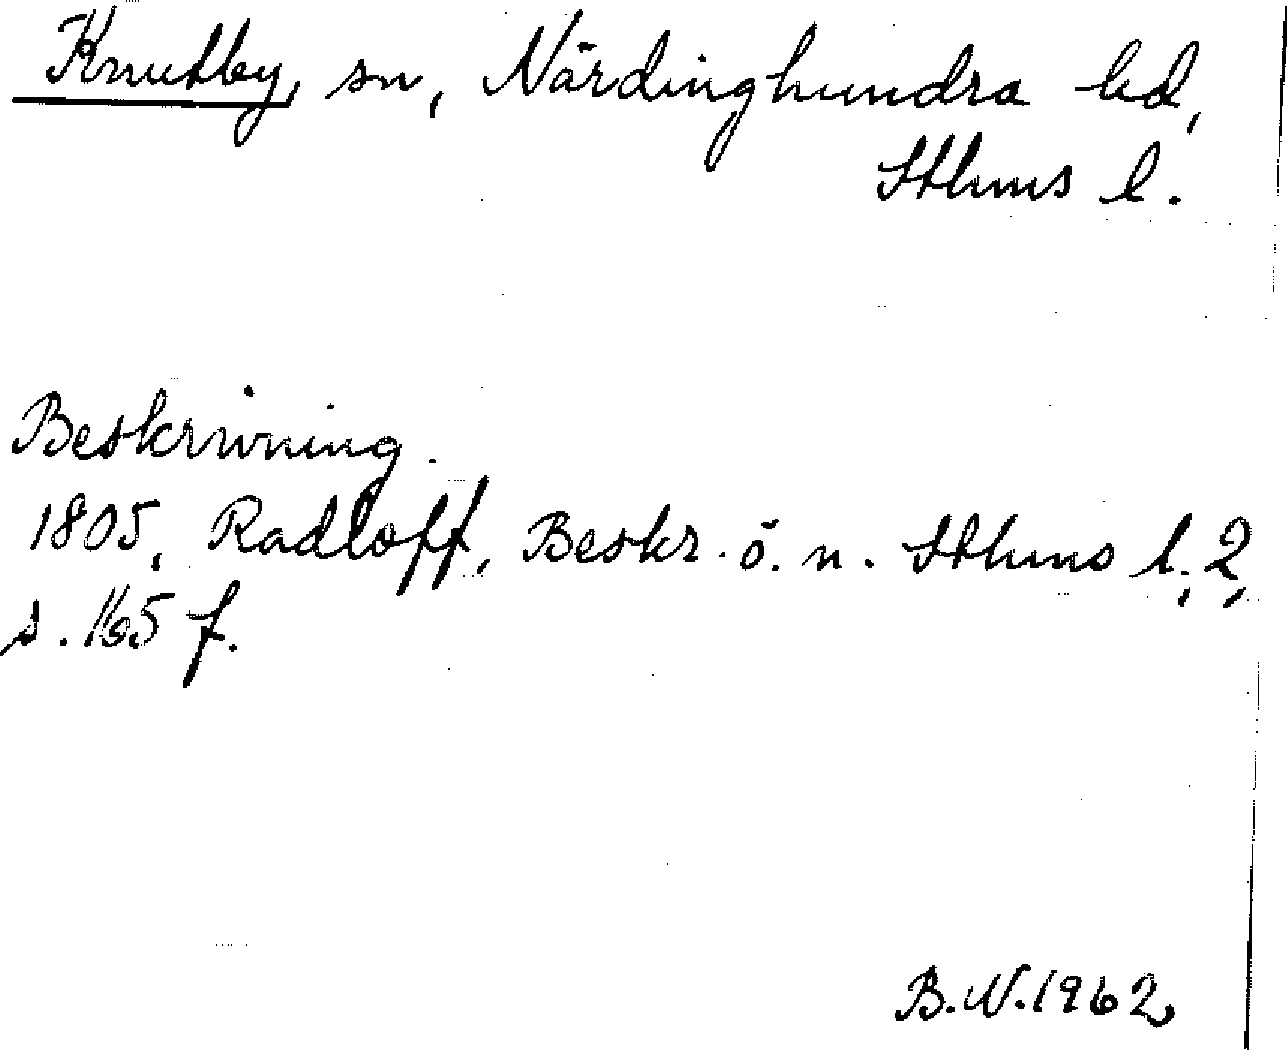 Knutby, sn, Närdinghundra hd,
Sthms l.
Beskrivning.
1805, Radloff, Beskr. ö. n. Sthms l, 2,
s. 165 f.
B.N. 1962